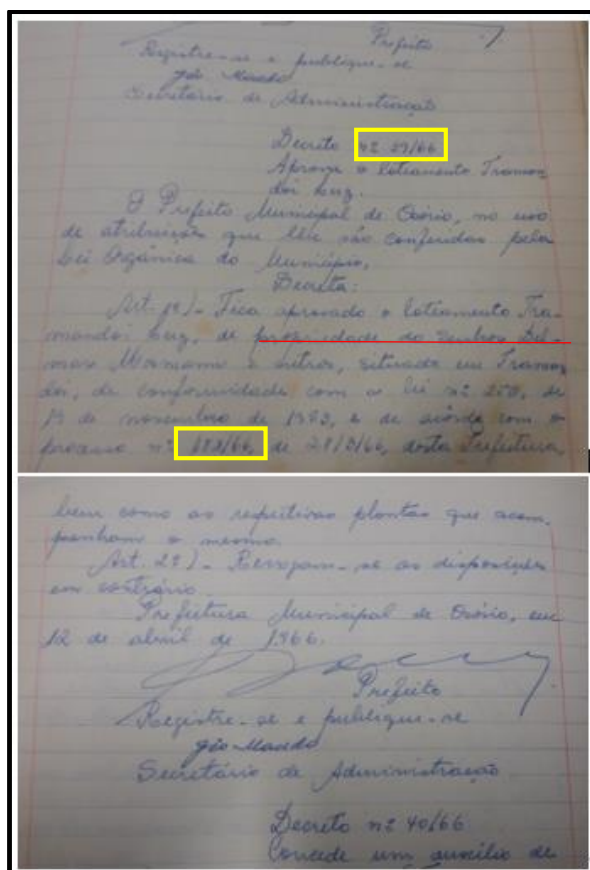 Prefeito
Registre-se e publique-se
Secretário de Administração
Decreto nº 39/66
Aprova o loteamento Traman
daí Luz.
O Prefeito Municipal de Osório, no uso
de atribuições que lhe são conferidas pela
Lei Orgânica do Município,
Decreta:
Art. 1º)- Fica aprovado o loteamento Tra-
mandaí Luz, de propriedade do senhor Del-
mar e outros, situado em Traman
daí, de conformidade com a lei nº de
de novembro de e de acôrdo com o
processo nº 182/66, de desta Prefeitura,
bem como as respectivas plantas que acom-
panham o mesmo.
Art. 2º)- Revogam-se as disposições
em contrário.
Prefeitura Municipal de Osório, em
12 de abril de 1966.
Prefeito
Registre-se e publique-se
Secretário de Administração
Decreto nº 40/66
Concede um auxílio de